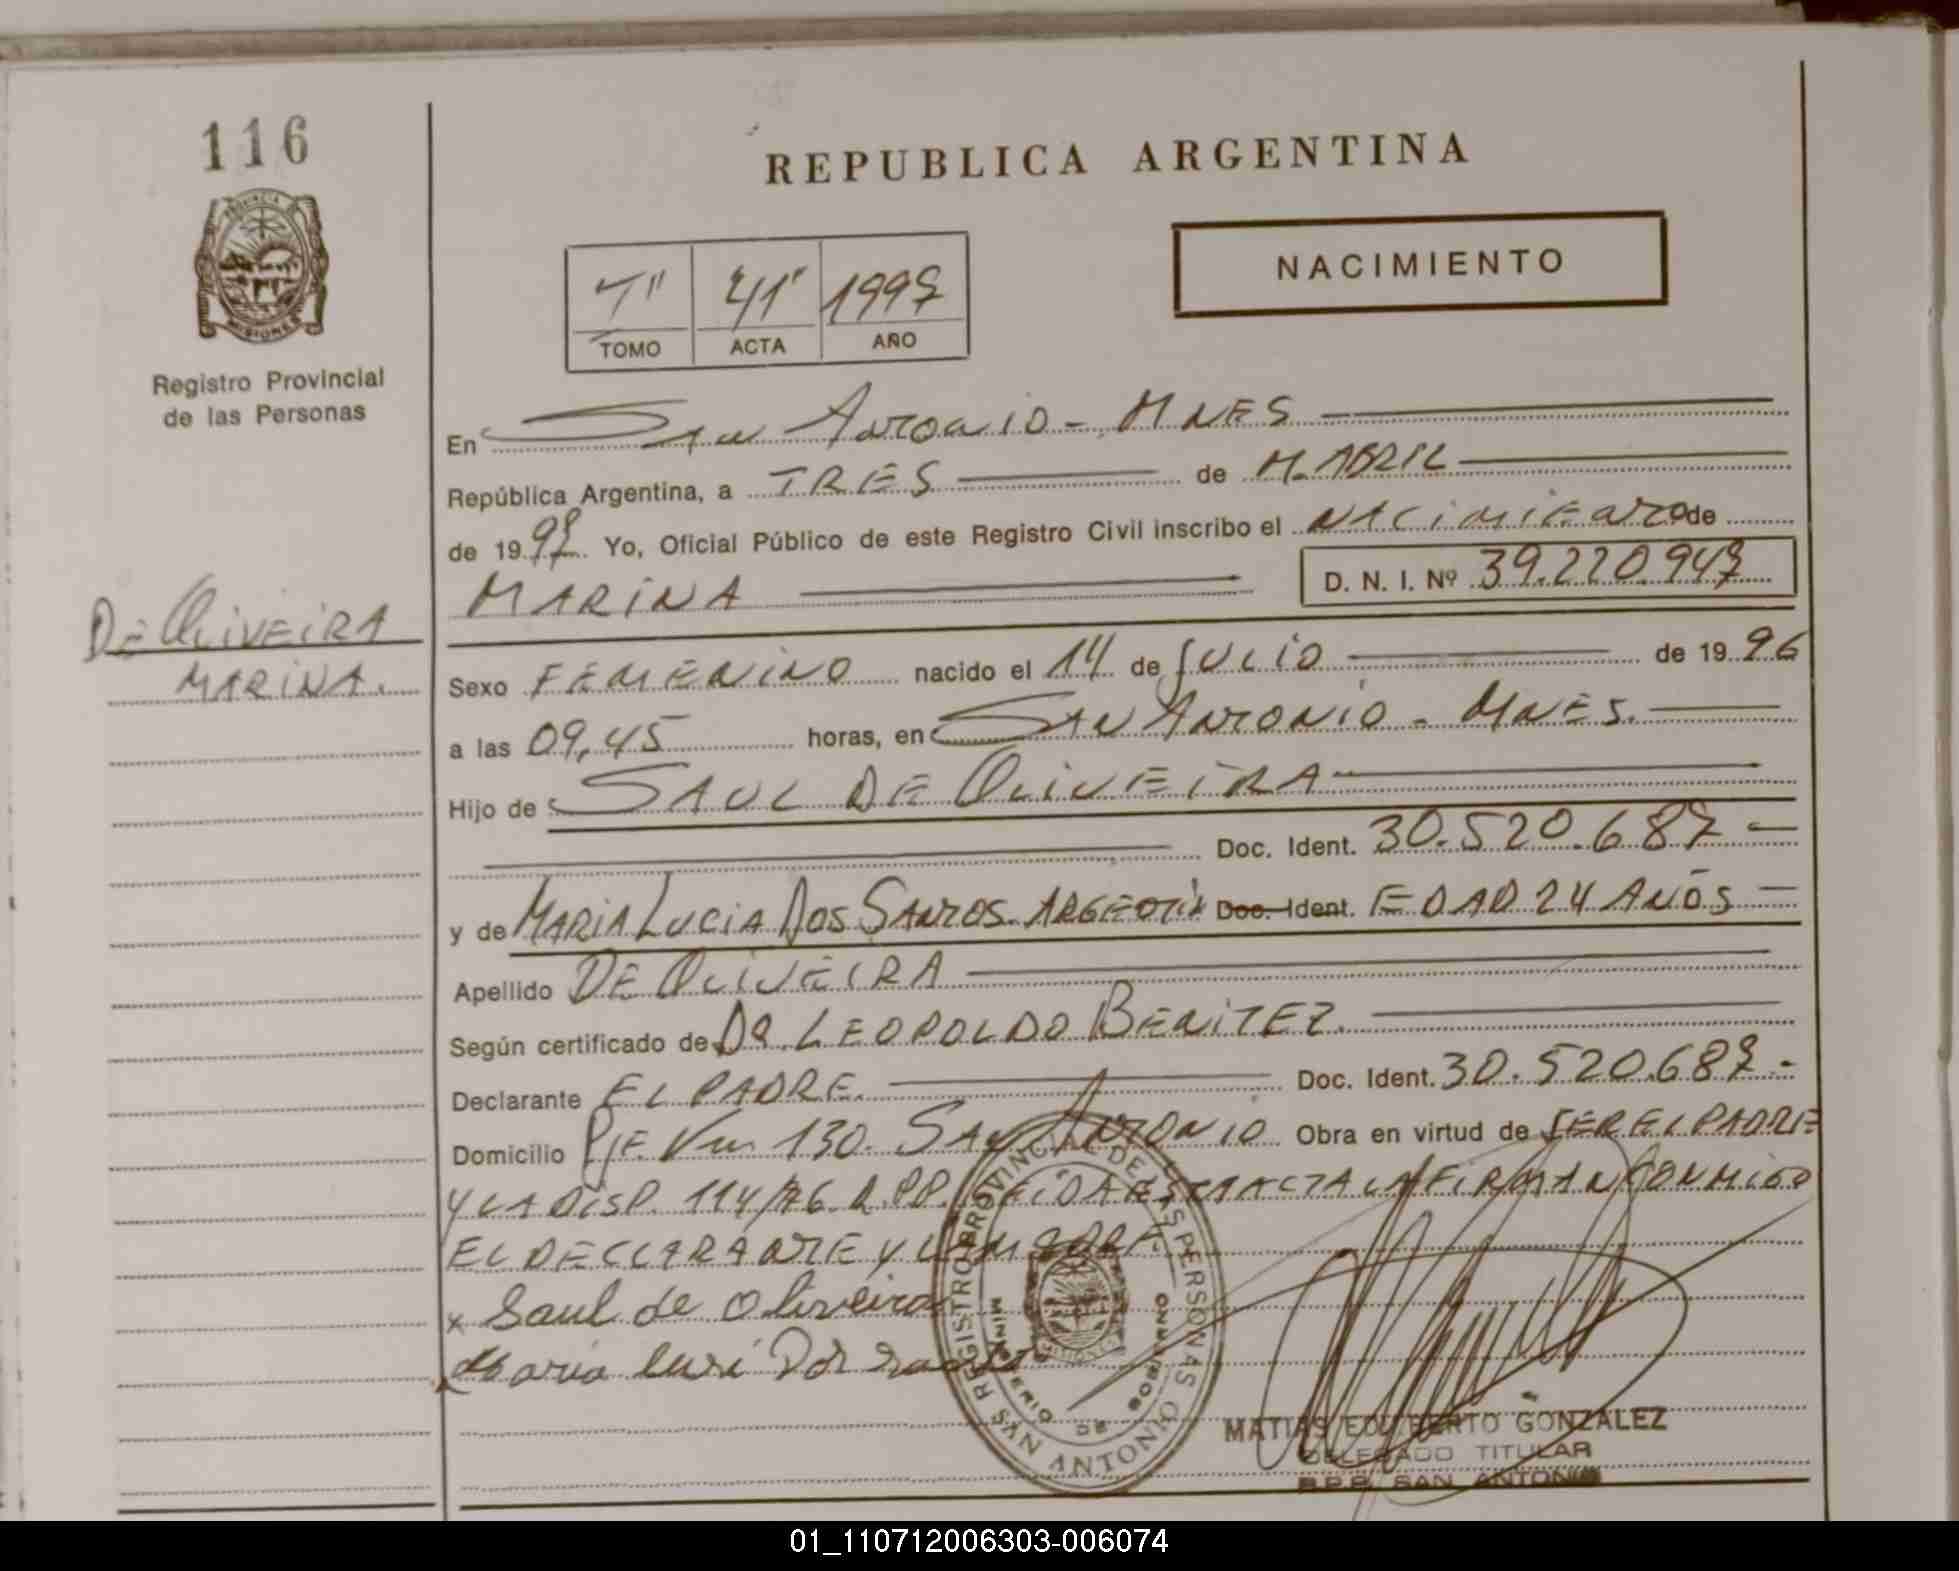 116
PROVINCIA DE
MISIONES
Registro Provincial
de las Personas
DE OLIVEIRA
MARINA.
REPUBLICA ARGENTINA
NACIMIENTO
Tº 41 1997
TOMO ACTA AÑO
En SAN ANTONIO - MNES
República Argentina, a TRES de ABRIL
de 1997 Yo, Oficial Público de este Registro Civil inscribo el NACIMIENTO de
MARINA D. N. I. Nº 39.220.947
Sexo FEMENINO nacido el 14 de JULIO de 1996
a las 09,45 horas, en SAN ANTONIO - MNES.
Hijo de SAUL DE OLIVEIRA
Doc. Ident. 30.520.687
y de MARIA LUCIA DOS SANTOS. ARGENTIN Doc. Ident. EDAD 24 AÑOS
Apellido DE OLIVEIRA
Según certificado de DR. LEOPOLDO BENITEZ
Declarante EL PADRE. Doc. Ident. 30.520.687.-
Domicilio PJE. Km 130. SAN ANTONIO Obra en virtud de SER EL PADRE
Y LA DISP. 114/76. R.PP. LEIDA ESTA ACTA LA FIRMAN CONMIGO
EL DECLARANTE Y LA MADRE
x Saul de Oliveira
Maria Dos Santos
REGISTRO PROVINCIAL DE LAS PERSONAS
MINISTERIO DE GOBIERNO
SAN ANTONIO
MATIAS EDILBERTO GONZALEZ
DELEGADO TITULAR
R.P.P. SAN ANTONIO
01_110712006303-006074